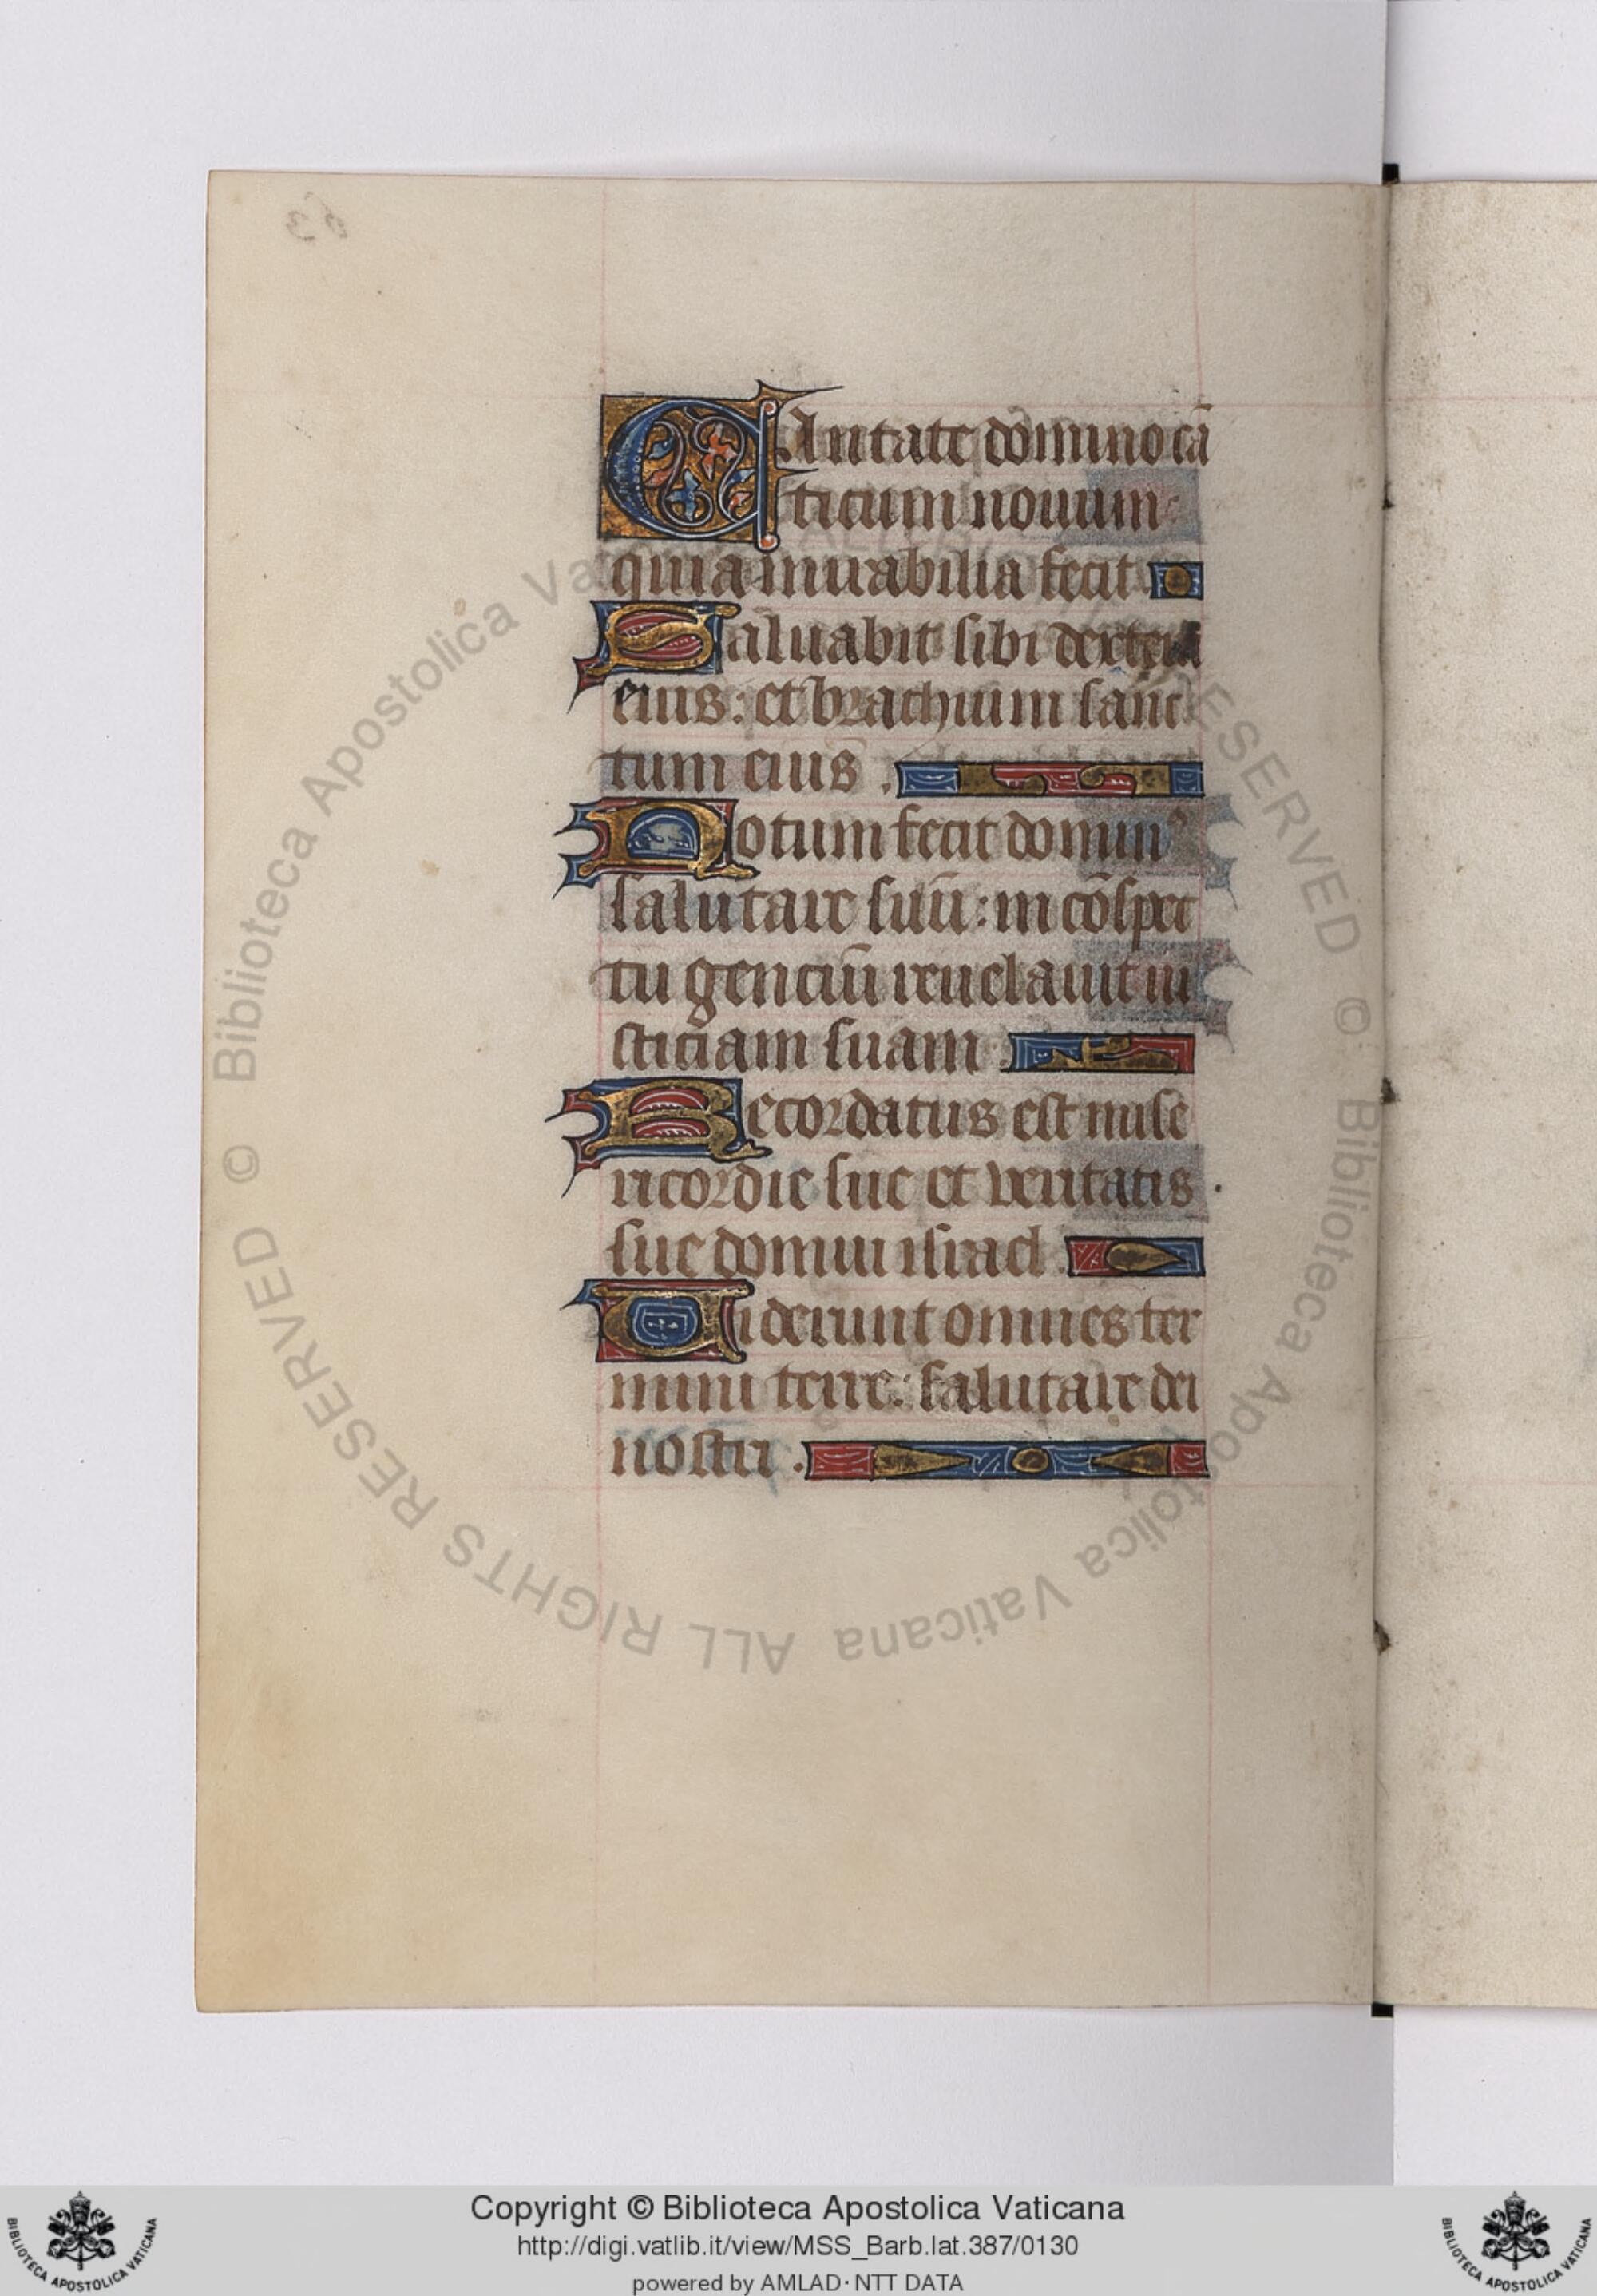 Cantate domino cā
ticum nouum
quia mirabilia fecit
Saluabit sibi dextera
eius: et brachium sanc
tum eius.
Notum fecit domin⁹
salutare suū: in cōspec
tu genciū reuelauit iu
sticiam suam.
Recordatus est mise
ricordie sue et veritatis
sue domui israel.
Uiderunt omnes ter
mini terre: salutare dei
nostri.
© Biblioteca Apostolica Vaticana ALL RIGHTS RESERVED © Biblioteca Apostolica Vaticana ALL RIGHTS RESERVED
Copyright © Biblioteca Apostolica Vaticana
http://digi.vatlib.it/view/MSS_Barb.lat.387/0130
powered by AMLAD·NTT DATA
BIBLIOTECA APOSTOLICA VATICANA
BIBLIOTECA APOSTOLICA VATICANA